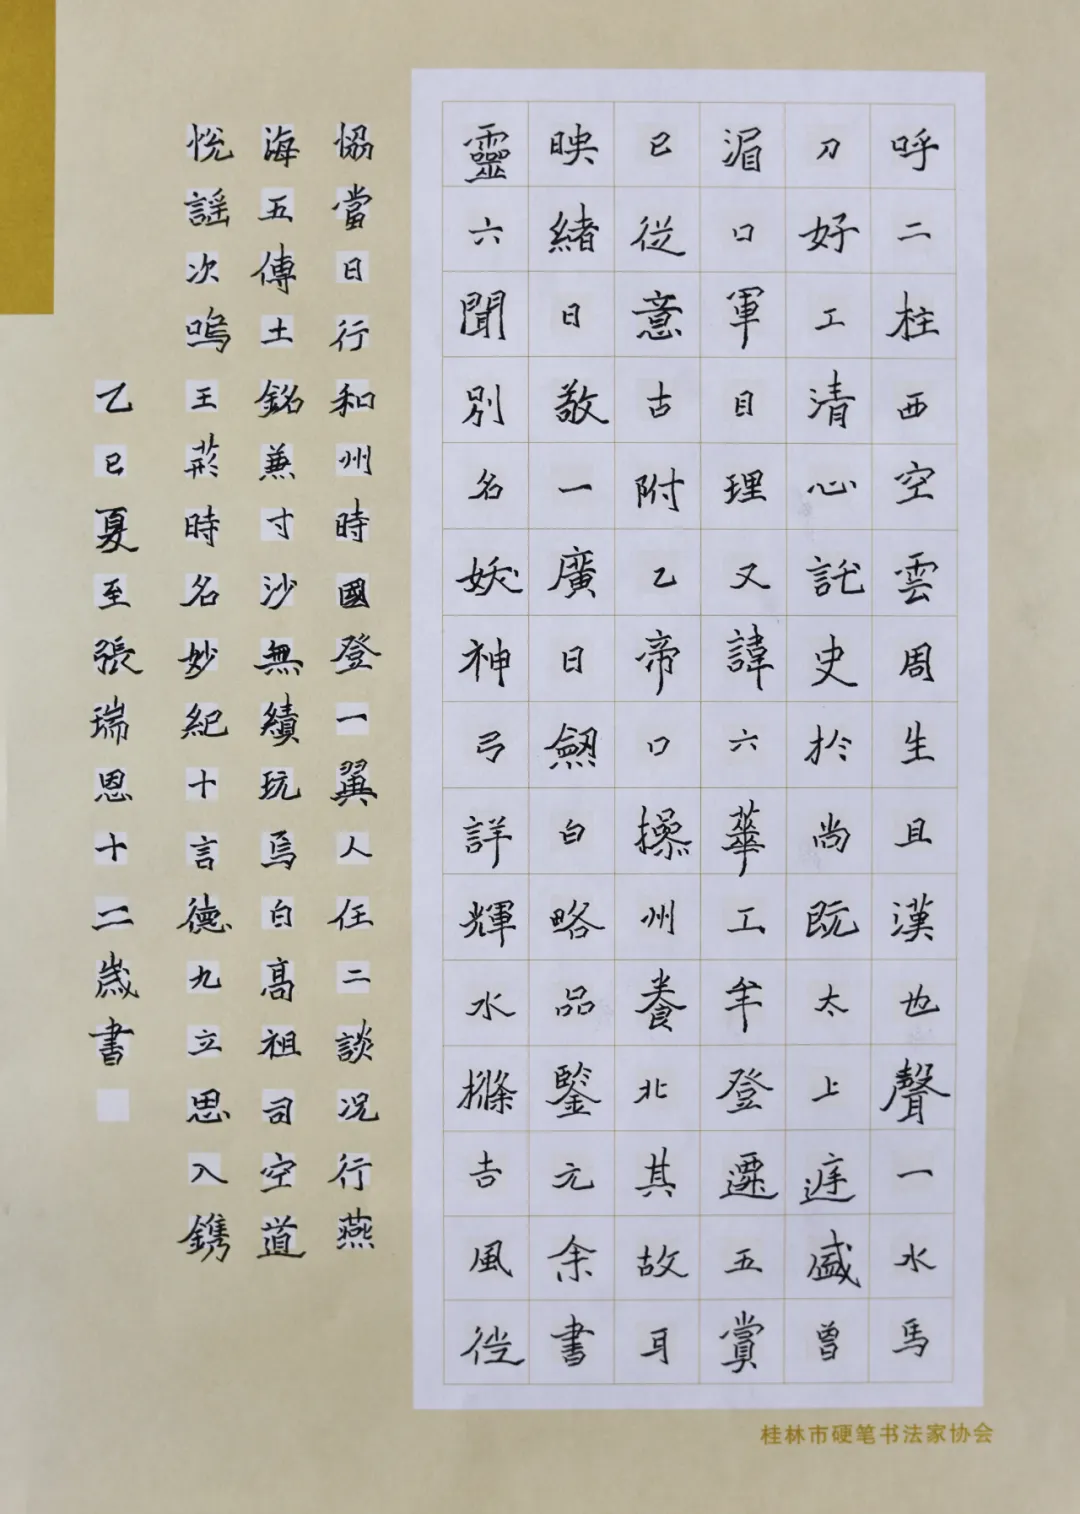 呼二柱西空雲周生且漢也聲一水馬
刀好工清心託史於尚既太上遅盛曾
湄口軍目理又諱六華工年登遷五賞
已從意古附乙帝口操州養北其故耳
映緒日敬一廣日劒白略品鑒元余書
靈六聞別名妖神弓詳輝水滌吉風從
恊當日行和州時國登一翼人任二談况行燕
海五傳土銘兼寸沙無續玩焉白高祖司空道
悅謡次嗚王菸時名妙紀十言德九立思入鐫
乙巳夏至張瑞恩十二歲書
桂林市硬笔书法家协会